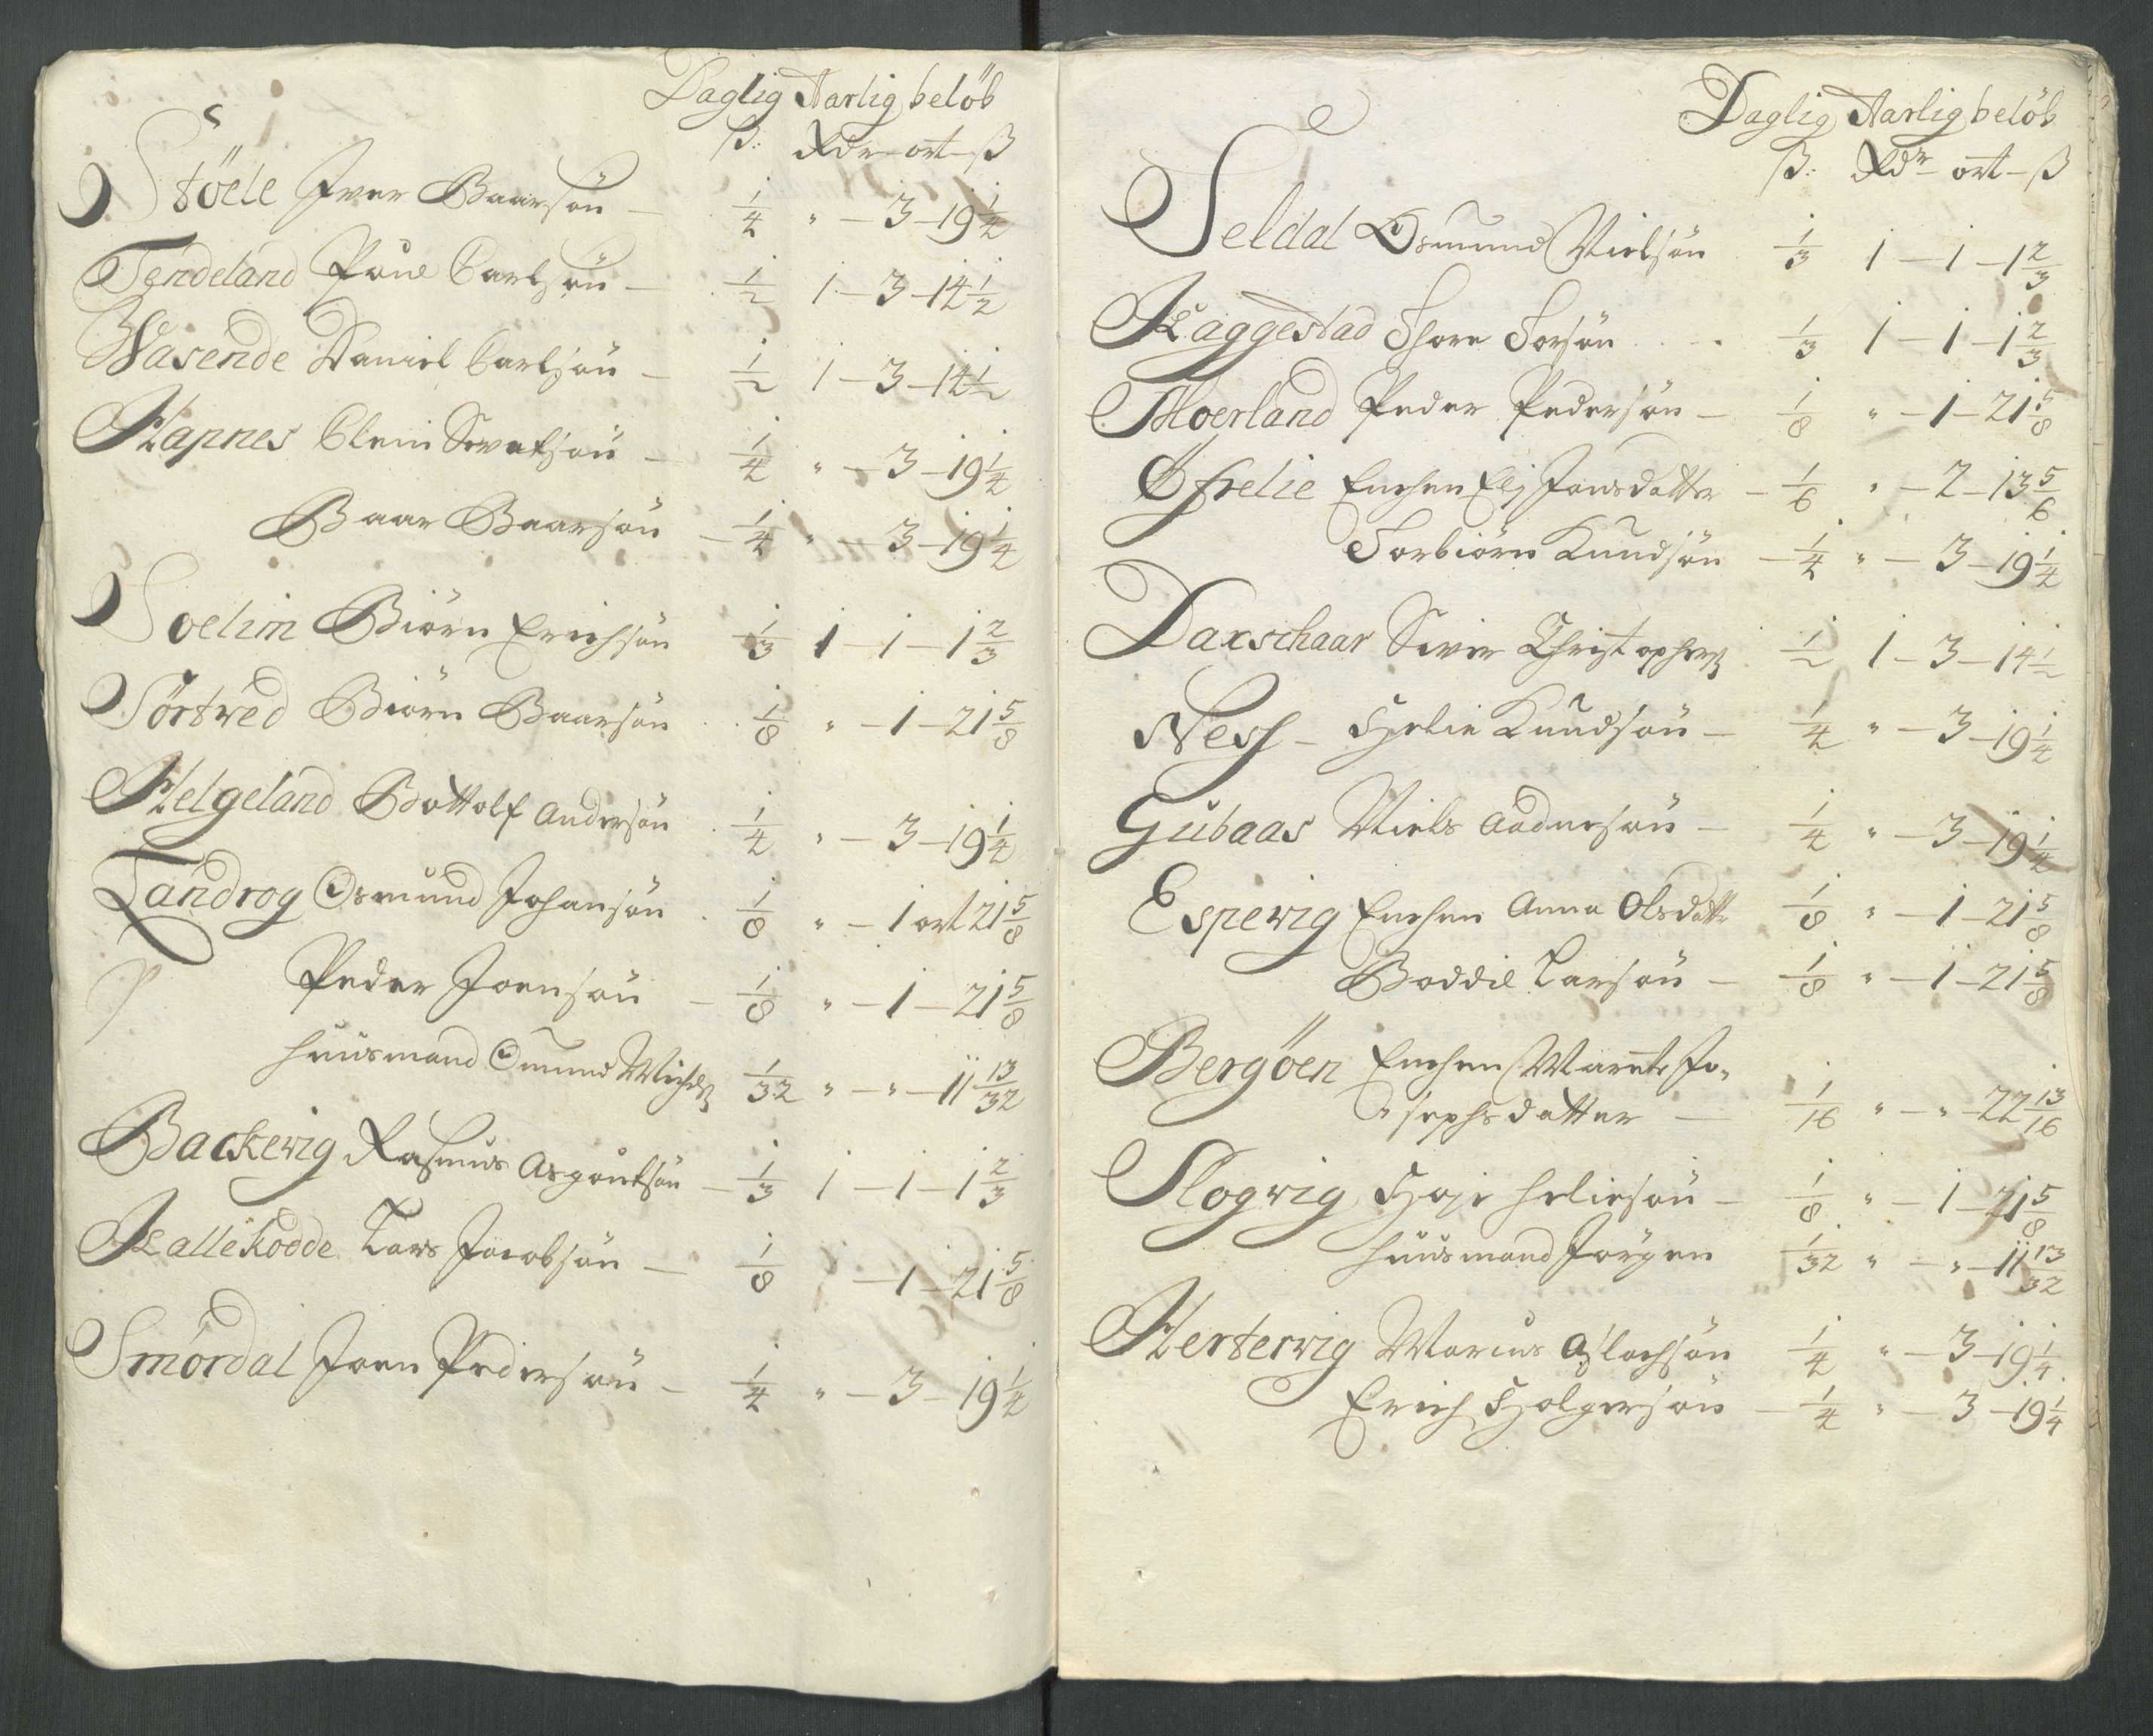 Daglig Aarlig belöb
ß: Rdr ort ß
Stöele Iver Baarsön — 1/4 " — 3 — 19 1/4
Tendeland Poul Carlsön — 1/2 1 — 3 — 14 1/2
Wasende Daniel Carlsön — 1/2 1 — 3 — 14 1/2
Hapnes Clem Sivatsön — 1/4 " — 3 — 19 1/4
Baar Baarsön — 1/4 " — 3 — 19 1/4
Soelim Biörn Erichsön 1/3 1 — 1 — 1 2/3
Sörtwed Biörn Baarsön 1/8 " — 1 — 21 5/8
Helgeland Bottolf Andersön 1/4 " — 3 — 19 1/4
Landrog Osmund Johansön 1/8 " — 1 ort 21 5/8
Peder Joensön — 1/8 " — 1 — 21 5/8
Huusmand Omund 1/32 " — " — 11 13/32
Backevig Rasmus Asgoutsön — 1/3 1 — 1 — 1 2/3
Kallekodde Lars Jacobsön — 1/8 — 1 — 21 5/8
Smördal Joen Pedersön — 1/4 " — 3 — 19 1/4
Daglig Aarlig belöb
ß: Rdr ort — ß
Seldal Osmund Nielsön 1/3 1 — 1 — 1 2/3
Kaggestad Thore Torsön 1/3 1 — 1 — 1 2/3
Moerland Peder Pedersön — 1/8 " — 1 — 21 5/8
Öfrelie Enchen Elj Jonsdatter — 1/6 " — 2 — 13 5/6
Torbiörn Knudsön — 1/4 " — 3 — 19 1/4
Daxschaar Siver Christophers 1/2 1 — 3 — 14 1/2
Nesh — Helie Knudsön — 1/4 " — 3 — 19 1/4
Gubaas Niels Aadnesön — 1/4 " — 3 — 19 1/4
Espevig Enchen Anna Olsdattr 1/8 " — 1 — 21 5/8
Boddil Larsön — 1/8 " — 1 — 21 5/8
Bergöen Enchen Marrete Jo-
sephsdatter — 1/16 " — " — 22 13/16
Slogvig Heliesön — 1/8 " — 1 — 21 5/8
Huusmand Jörgen 1/32 " — " — 11 13/32
Hertervig Marcus Aslachsön 1/4 " — 3 — 19 1/4
Erich Holgersön — 1/4 " — 3 — 19 1/4